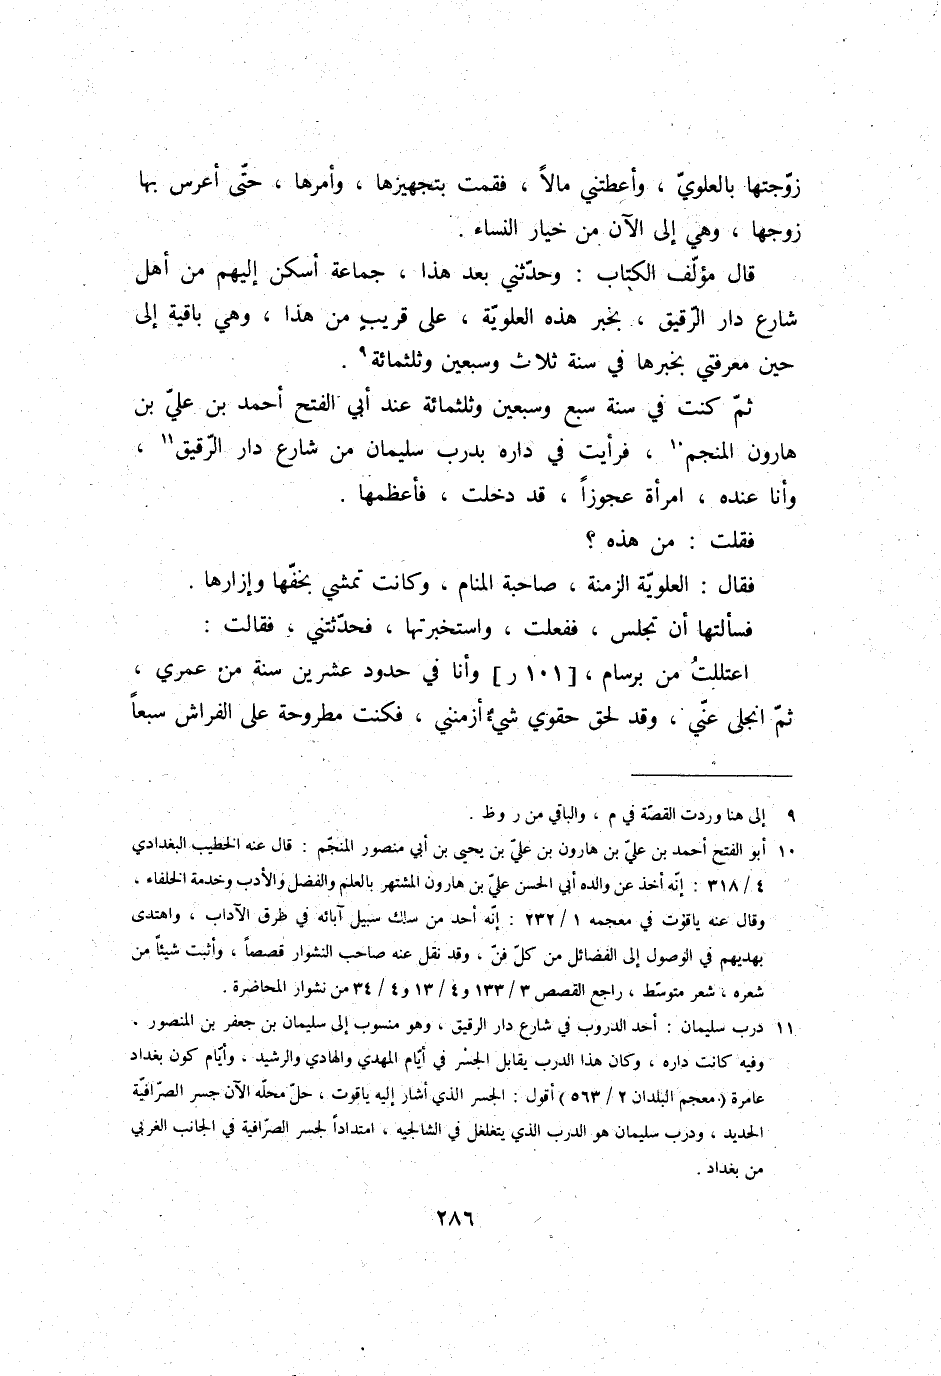 زوّجتها بالعلويّ ، وأعطتني مالاً ، فقمت بتجهيزها ، وأمرها ، حتّى أعرس بها
زوجها ، وهي إلى الآن من خيار النساء .
قال مؤلّف الكتاب : وحدّثني بعد هذا ، جماعة أسكن إليهم من أهل
شارع دار الرّقيق ، بخبر هذه العلويّة ، على قريبٍ من هذا ، وهي باقية إلى
حين معرفتي بخبرها في سنة ثلاث وسبعين وثلثمائة٩ .
ثمّ كنت في سنة سبع وسبعين وثلثمائة عند أبي الفتح أحمد بن عليّ بن
هارون المنجم١٠ ، فرأيت في داره بدرب سليمان من شارع دار الرّقيق١١ ،
وأنا عنده ، امرأة عجوزاً ، قد دخلت ، فأعظمها .
فقلت : من هذه ؟
فقال : العلويّة الزمنة ، صاحبة المنام ، وكانت تمشي بخفّها وإزارها .
فسألتها أن تجلس ، ففعلت ، واستخبرتها ، فحدّثتني ، فقالت :
اعتللتُ من برسام ، [ ١٠١ ر ] وأنا في حدود عشرين سنة من عمري ،
ثمّ انجلى عنّي ، وقد لحق حقوي شيءٌ أزمنني ، فكنت مطروحة على الفراش سبعاً
٩ إلى هنا وردت القصّة في م ، والباقي من ر وظ .
١٠ أبو الفتح أحمد بن عليّ بن هارون بن عليّ بن يحيى بن أبي منصور المنجّم : قال عنه الخطيب البغدادي
٤ / ٣١٨ : إنّه أخذ عن والده أبي الحسن عليّ بن هارون المشتهر بالعلم والفضل والأدب وخدمة الخلفاء ،
وقال عنه ياقوت في معجمه ١ / ٢٣٢ : إنّه أحد من سلك سبيل آبائه في طرق الآداب ، واهتدى
بهديهم في الوصول إلى الفضائل من كلّ فنّ ، وقد نقل عنه صاحب النشوار قصصاً ، وأثبت شيئاً من
شعره ، شعر متوسّط ، راجع القصص ٣ / ١٣٣ و٤ / ١٣ و٤ / ٣٤ من نشوار المحاضرة .
١١ درب سليمان : أحد الدروب في شارع دار الرقيق ، وهو منسوب إلى سليمان بن جعفر بن المنصور .
وفيه كانت داره ، وكان هذا الدرب يقابل الجسْر في أيّام المهدي والهادي والرشيد . وأيّام كون بغداد
عامرة ( معجم البلدان ٢ / ٥٦٣ ) أقول : الجسر الذي أشار إليه ياقوت ، حلّ محلّه الآن جسر الصرّافيّة
الحديد ، ودرب سليمان هو الدرب الذي يتغلغل في الشالجيه ، امتداداً لجسر الصرّافية في الجانب الغربي
من بغداد .
٢٨٦